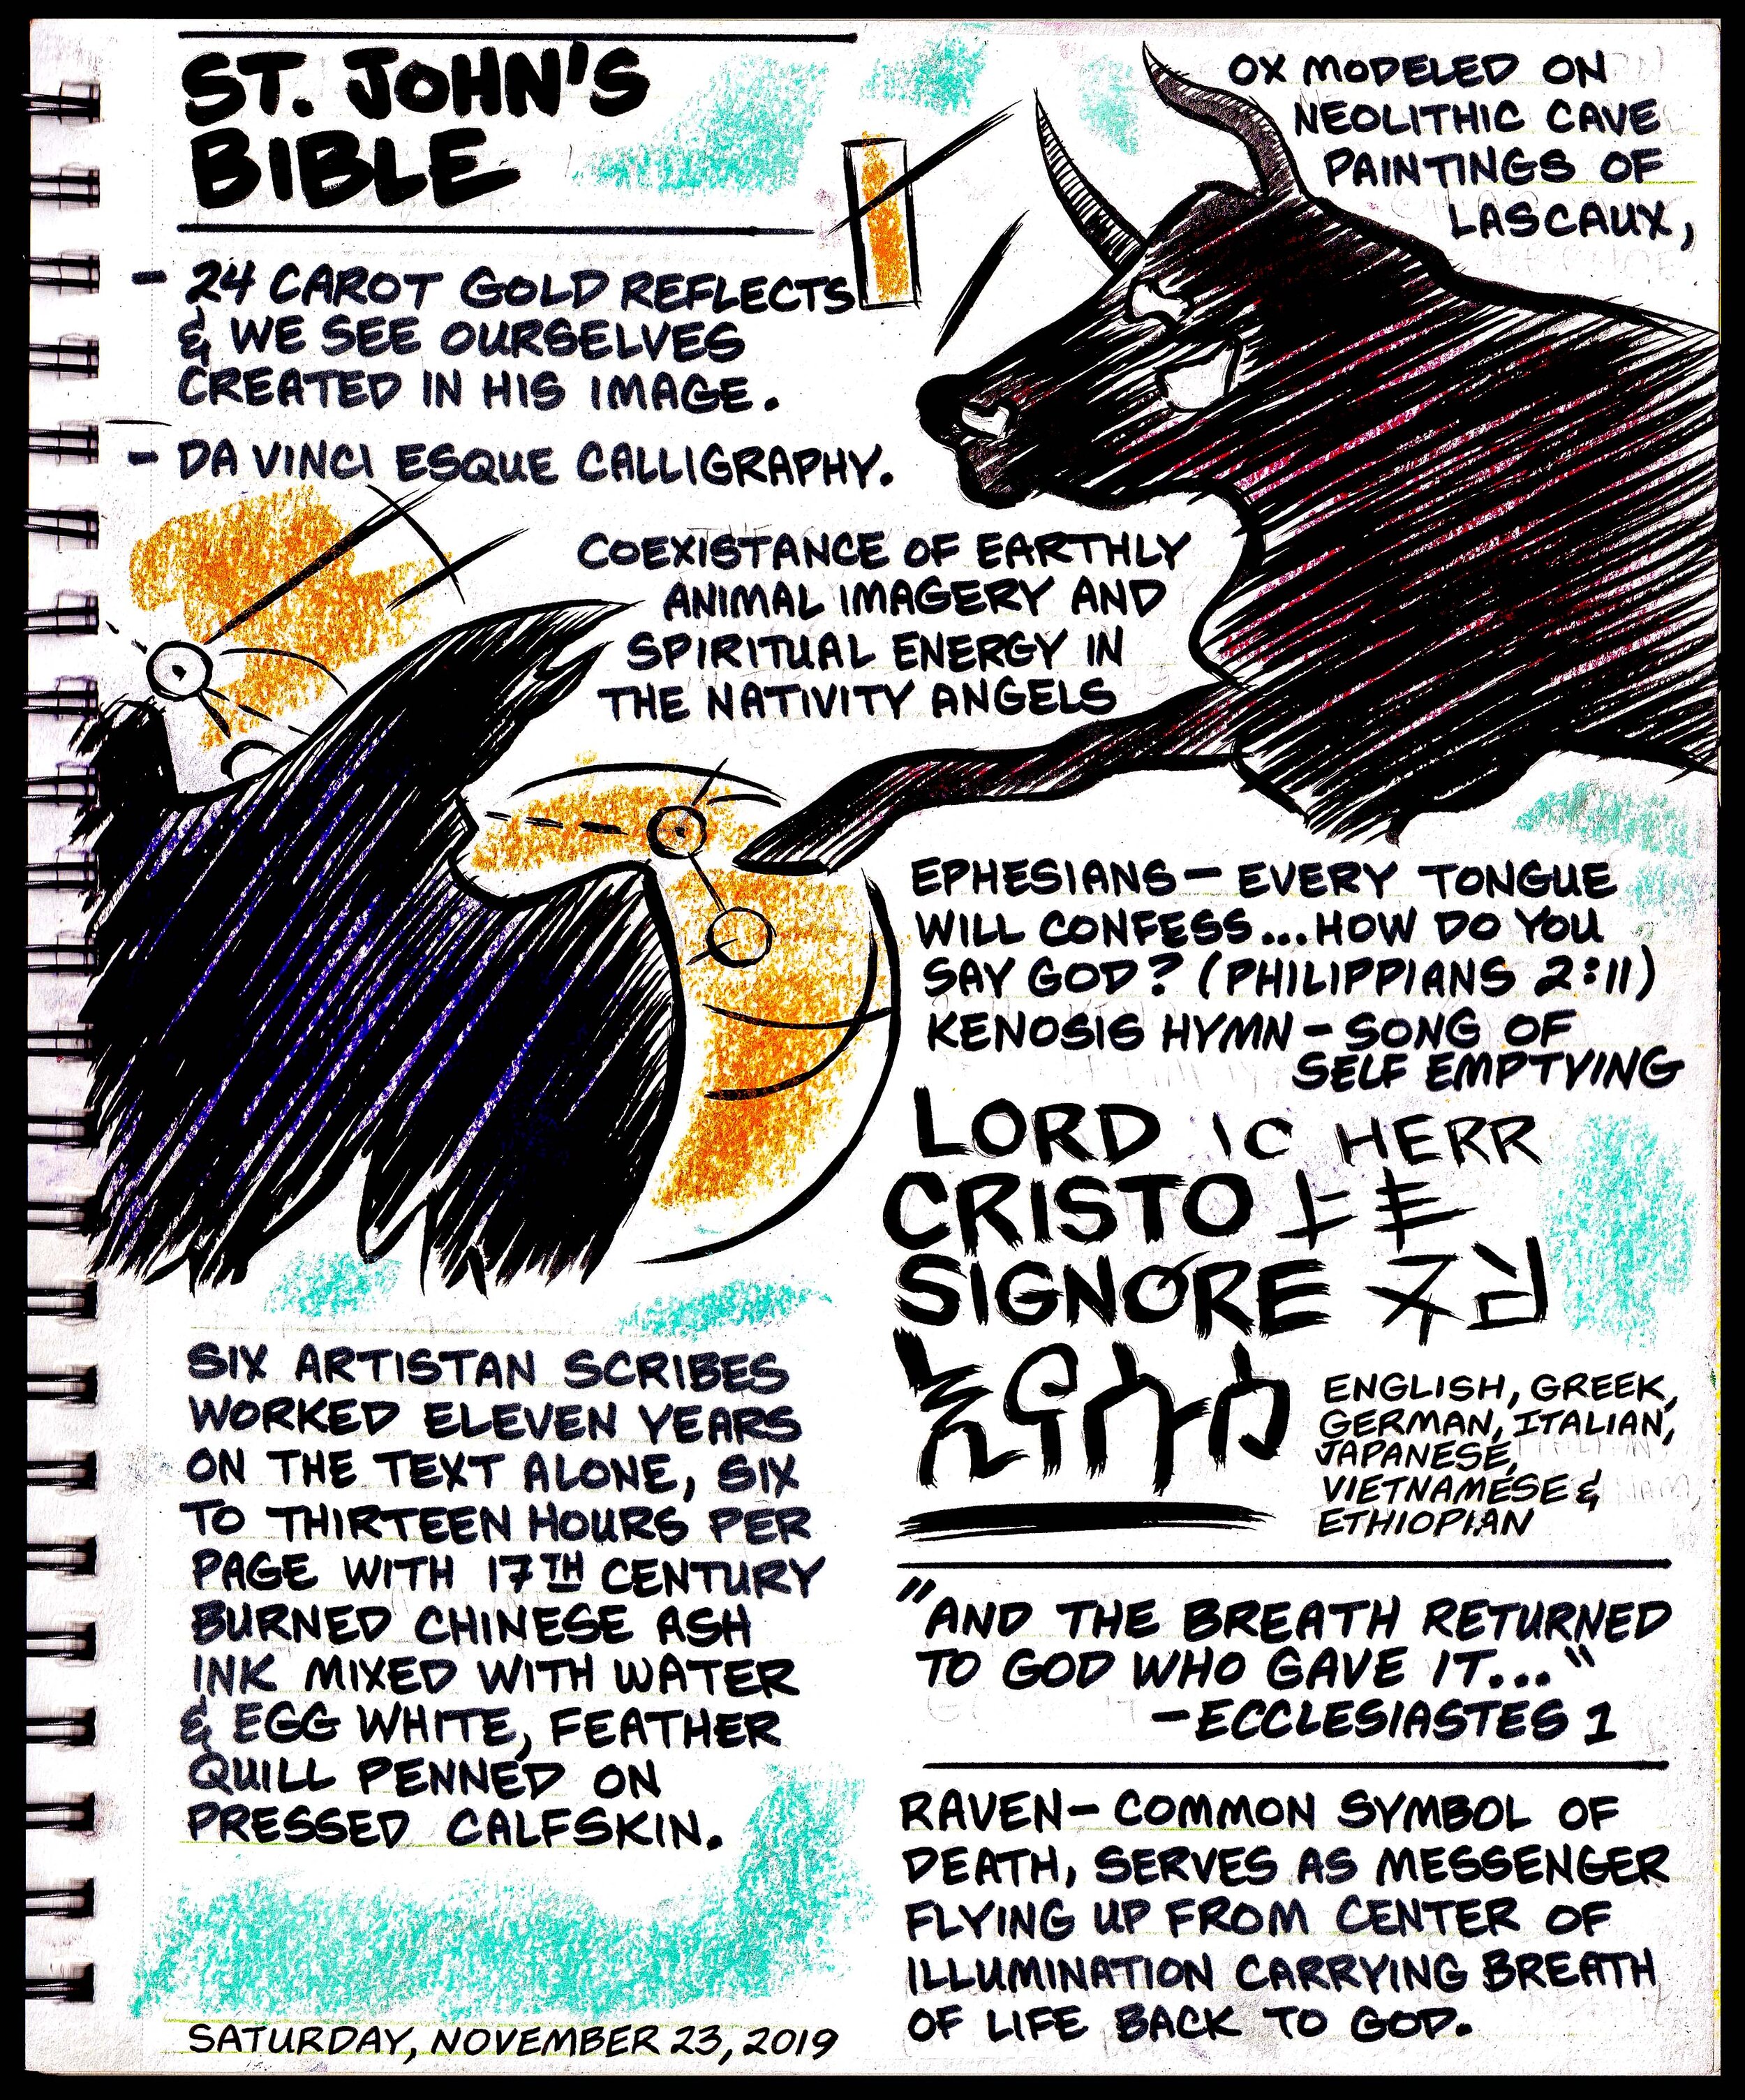 ST. JOHN'S
BIBLE
- 24 CAROT GOLD REFLECTS
& WE SEE OURSELVES
CREATED IN HIS IMAGE.
- DA VINCI ESQUE CALLIGRAPHY.
OX MODELED ON
NEOLITHIC CAVE
PAINTINGS OF
LASCAUX,
COEXISTANCE OF EARTHLY
ANIMAL IMAGERY AND
SPIRITUAL ENERGY IN
THE NATIVITY ANGELS
EPHESIANS - EVERY TONGUE
WILL CONFESS...HOW DO YOU
SAY GOD? (PHILIPPIANS 2:11)
KENOSIS HYMN - SONG OF
SELF EMPTYING
LORD IC HERR
CRISTO
SIGNORE
ENGLISH, GREEK,
GERMAN, ITALIAN,
JAPANESE,
VIETNAMESE &
ETHIOPIAN
"AND THE BREATH RETURNED
TO GOD WHO GAVE IT..."
-ECCLESIASTES 1
RAVEN - COMMON SYMBOL OF
DEATH, SERVES AS MESSENGER
FLYING UP FROM CENTER OF
ILLUMINATION CARRYING BREATH
OF LIFE BACK TO GOD.
SIX ARTISTAN SCRIBES
WORKED ELEVEN YEARS
ON THE TEXT ALONE, SIX
TO THIRTEEN HOURS PER
PAGE WITH 17TH CENTURY
BURNED CHINESE ASH
INK MIXED WITH WATER
& EGG WHITE, FEATHER
QUILL PENNED ON
PRESSED CALFSKIN.
SATURDAY, NOVEMBER 23, 2019